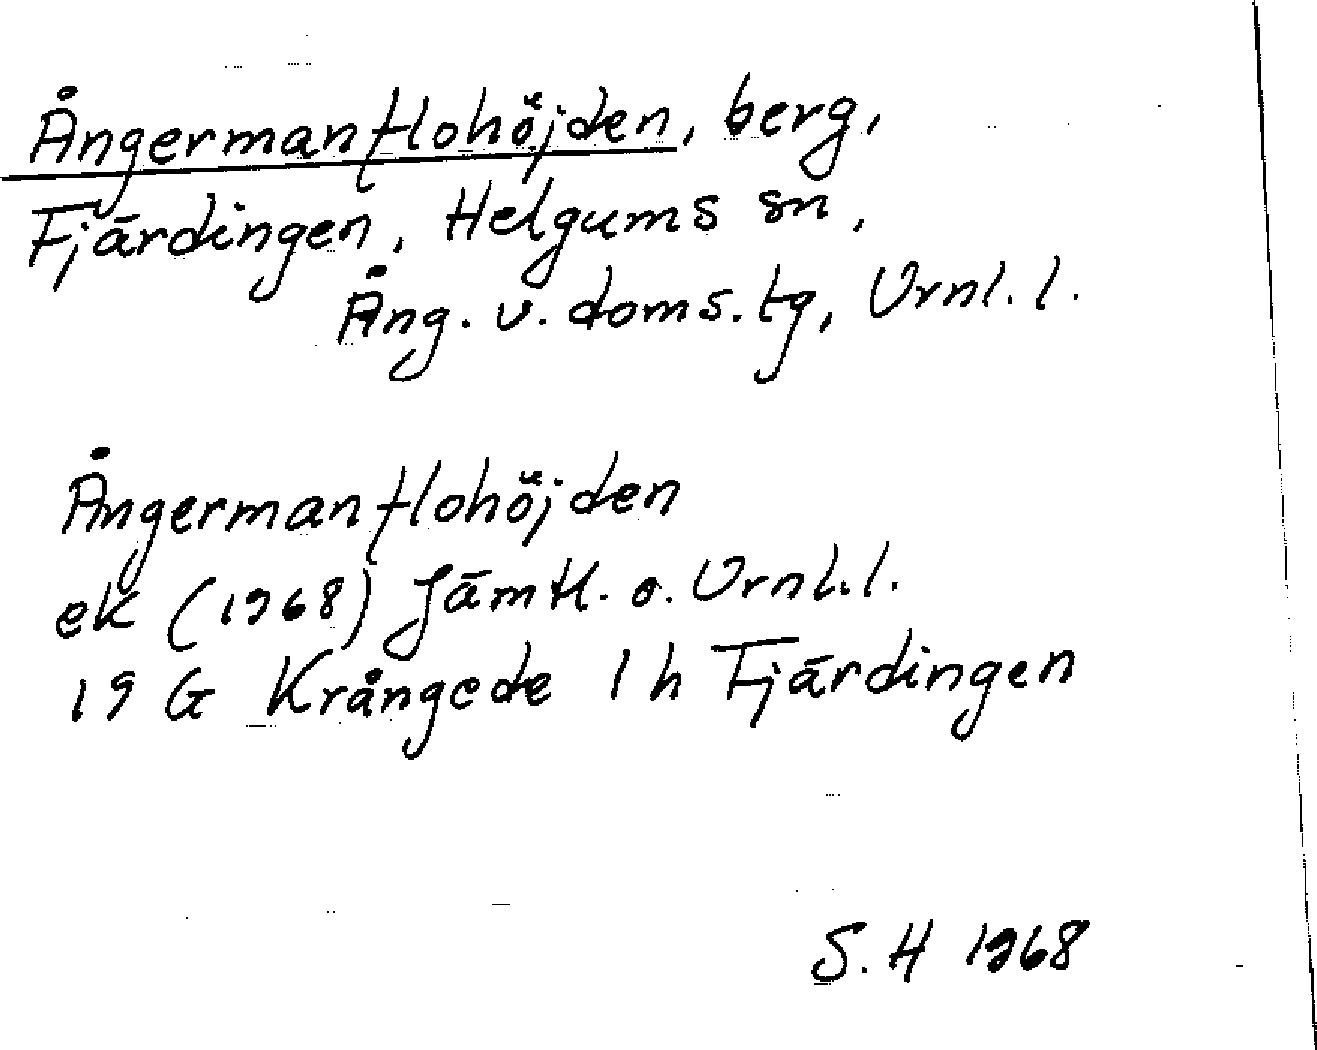 Ångermanflohöjden, berg,
Fjärdingen, Helgums sn,
Ång. v. doms. tg, Vrnl. l.
Ångermanflohöjden
ek (1968) Jämtl. o. Vrnl. l.
19 G Krångede 1 h Fjärdingen
S. H 1968